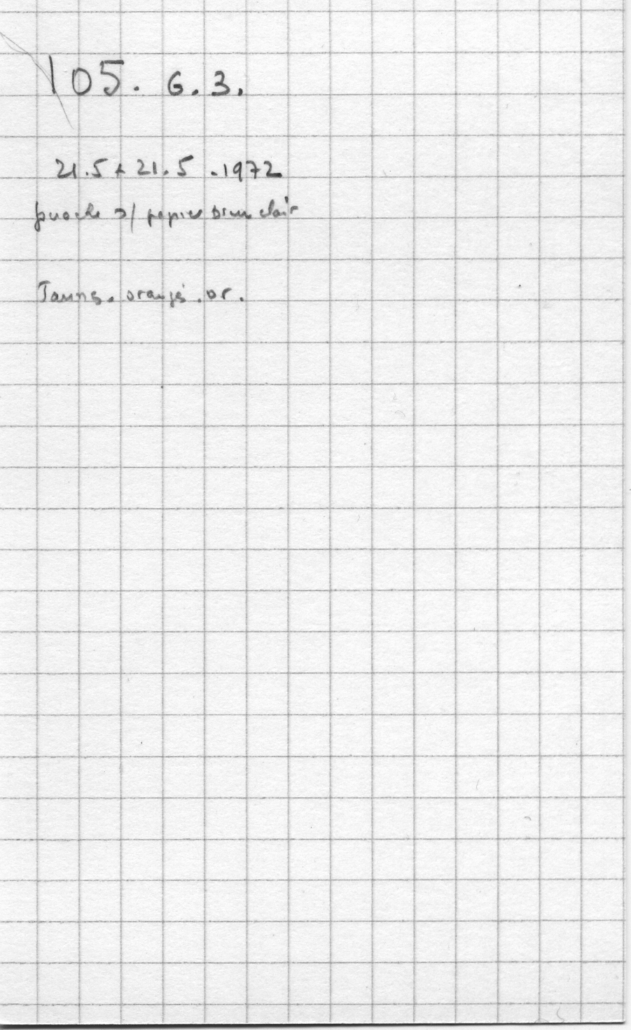 105. G.3.
21.5 x 21.5 .1972
gouache s/ papier brun clair
Jaune. orangé. or.